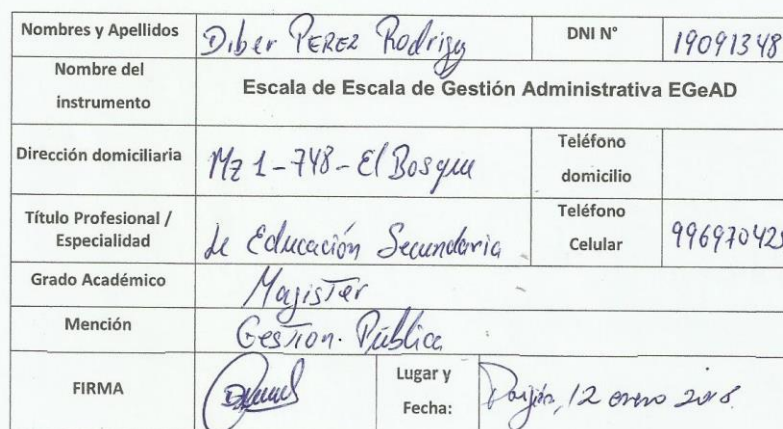 Nombres y Apellidos Diber PEREZ Rodrigu DNI N° 19091348
Nombre del instrumento Escala de Escala de Gestión Administrativa EGeAD
Dirección domiciliaria Mz 1-748- El Bosque Teléfono domicilio
Título Profesional / Especialidad de Educación Secundaria Teléfono Celular 99697042
Grado Académico Magister
Mención Gestion. Pública
FIRMA Lugar y Fecha: Paiján, 12 enero 2018.